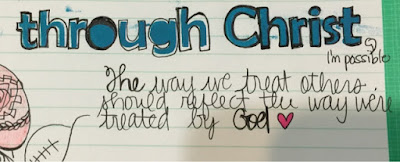 through Christ
I'm possible
The way we treat others
should reflect the way we're
treated by God